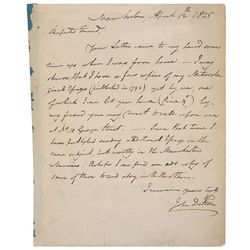 Manchester, April 12th 1825
Respected friend,
Your Letter came to my hand some
time ago when I was from home — I may
observe that I have a few copies of my Meteorolo-
gical Essays (published in 1793) yet by me one
of which I can let you have (Price        ) by
any friend you may send to call upon me
at No 10 George Street. — Since that time I
have published sundry additional Essays on the
same subject but mostly in the Manchester
Memoirs. Perhaps I can find an odd copy of
some of these to send along with the other.
I remain yours truly
John Dalton